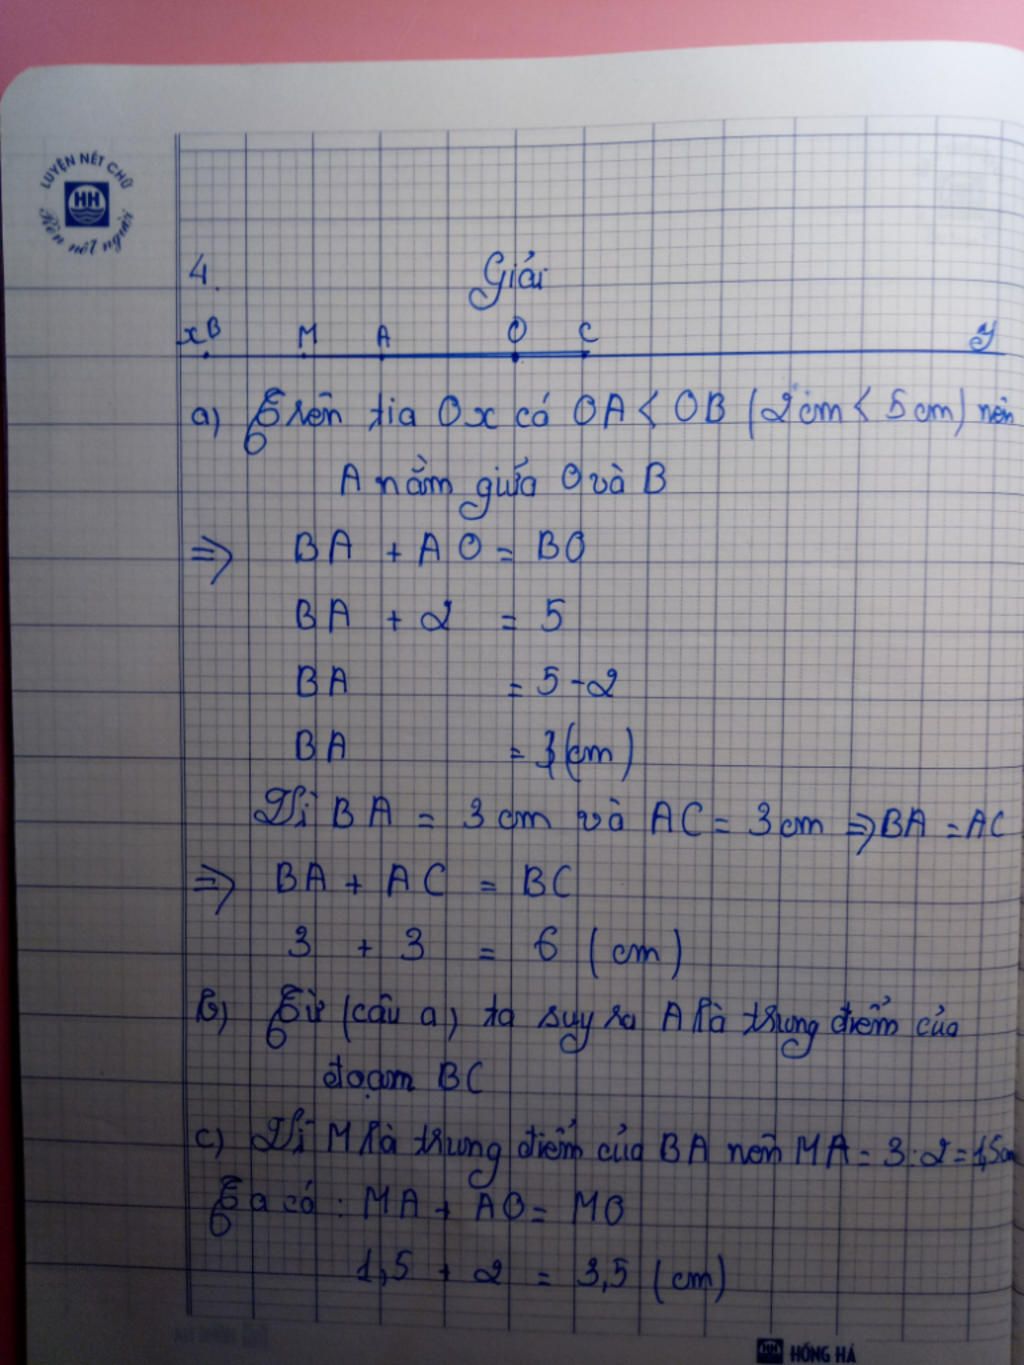 LUYỆN NÉT CHỮ
HH
Rèn nết người
4. Giải
x B M A O C y
a) Trên tia Ox có OA < OB (2cm < 5cm) nên
A nằm giữa O và B
=> BA + AO = BO
BA + 2 = 5
BA = 5 - 2
BA = 3 (cm)
Vì BA = 3cm và AC = 3cm => BA = AC
=> BA + AC = BC
3 + 3 = 6 (cm)
b) Từ (câu a) ta suy ra A là trung điểm của
đoạm BC
c) Vì M là trung điểm của BA nên MA = 3:2 = 1,5cm
Ta có: MA + AO = MO
1,5 + 2 = 3,5 (cm)
HH HỒNG HÀ